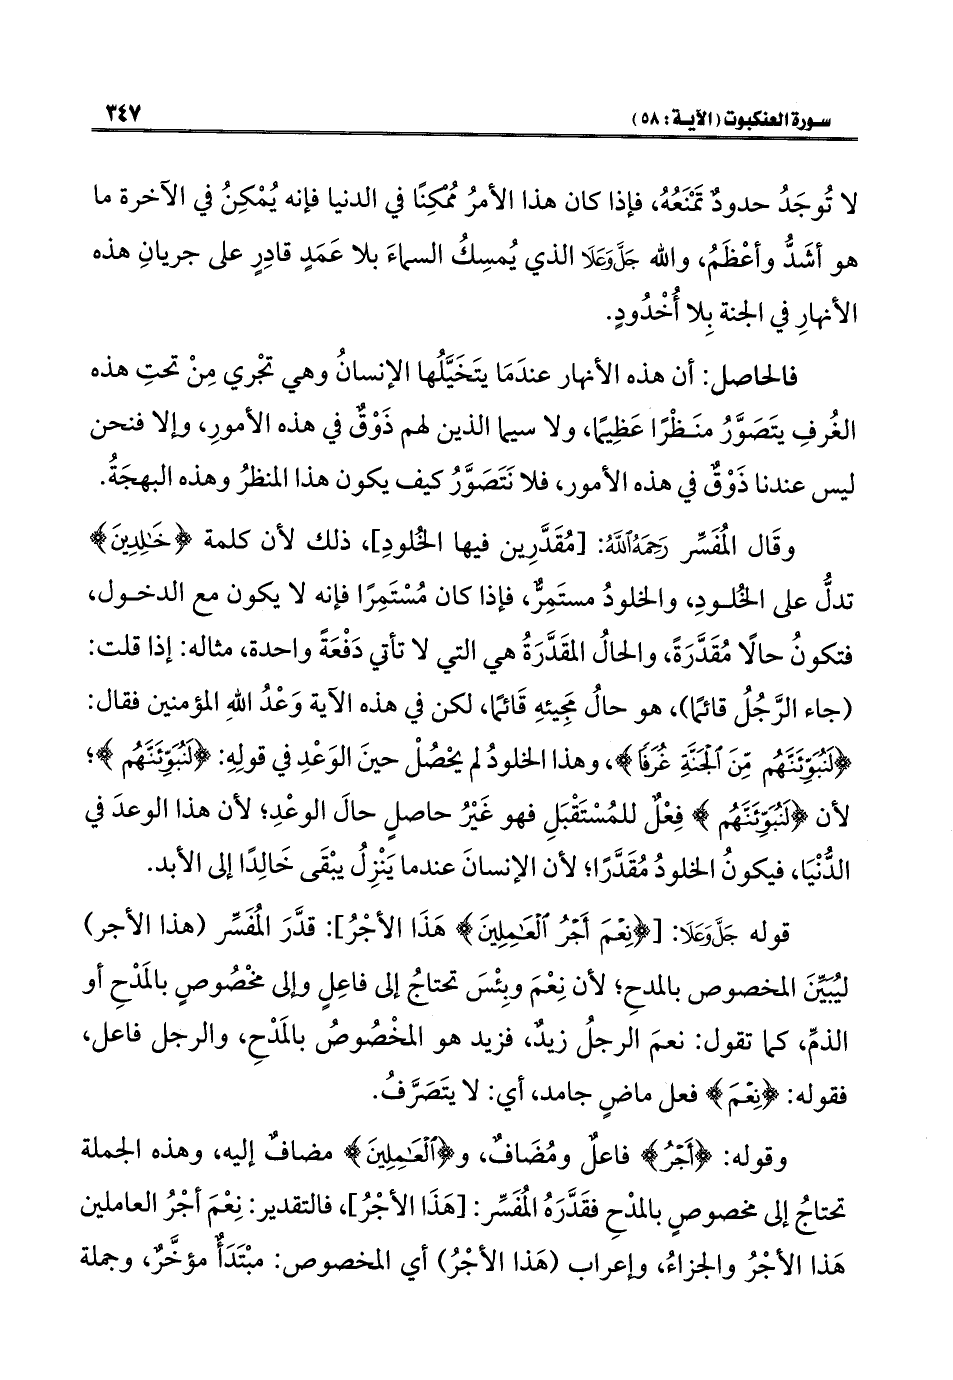 سورة العنكبوت (الآية: ٥٨)
٣٤٧
لا تُوجَدُ حدودٌ تمْنَعُهُ، فإذا كان هذا الأمرُ مُمْكِنًا في الدنيا فإنه يُمْكِنُ في الآخرة ما
هو أشَدُّ وأعْظَمُ، والله جَلَّوَعَلَا الذي يُمسِكُ السماءَ بلا عَمَدٍ قادِرٍ على جريانِ هذه
الأنهارِ في الجنة بِلا أُخْدُودٍ.
فالحاصل: أن هذه الأنهار عندَمَا يتَخَيَّلُها الإنسانُ وهي تجْري مِنْ تحتِ هذه
الغُرفِ يتَصَوَّرُ منَـظْرًا عَظِيمًا، ولا سيما الذين لهم ذَوْقٌ في هذه الأمورِ، وإلا فنحن
ليس عندنا ذَوْقٌ في هذه الأمور، فلا نَتَصَوَّرُ كيف يكون هذا المنظرُ وهذه البهجَةُ.
وقَال المُفَسِّر رَحِمَهُ ٱللَّهُ: [مُقَدَّرِين فيها الخلودِ]، ذلك لأن كلمة ﴿خَـٰلِدِينَ﴾
تدلُّ على الخُلـودِ، والخلودُ مستَمِرٌّ، فإذا كان مُسْتَمِرًا فإنه لا يكون مع الدخـول،
فتكونُ حالًا مُقَدَّرَةً، والحالُ المقَدَّرَةُ هي التي لا تأتي دَفْعَةً واحدة، مثاله: إذا قلت:
(جاء الرَّجُلُ قائمًا)، هو حالُ مَجِيئهِ قَائمًا، لكن في هذه الآية وَعْدُ اللهِ المؤمنين فقال:
﴿لَنُبَوِّئَنَّهُم مِّنَ ٱلْجَنَّةِ غُرَفًا﴾، وهذا الخلودُ لم يحْصُلْ حينَ الوَعْدِ في قولِهِ: ﴿لَنُبَوِّئَنَّهُم﴾؛
لأن ﴿لَنُبَوِّئَنَّهُم﴾ فِعْلٌ للمُسْتَقْبَلِ فهو غَيْرُ حاصلٍ حالَ الوعْدِ؛ لأن هذا الوعدَ في
الدُّنْيَا، فيكونُ الخلودُ مُقَدَّرًا؛ لأن الإنسانَ عندما يَنْزِلُ يبْقَى خَالِدًا إلى الأبد.
قوله جَلَّوَعَلَا: [﴿نِعْمَ أَجْرُ ٱلْعَـٰمِلِينَ﴾ هَذَا الأجْرُ]: قدَّرَ المُفَسِّر (هذا الأجر)
ليُبيِّنَ المخصوص بالمدحِ؛ لأن نِعْمَ وبِئْسَ تحتاجُ إلى فاعِلٍ وإلى مخْصُوصٍ بالمَدْحِ أو
الذمِّ، كما تقول: نعمَ الرجلُ زيدٌ، فزيد هو المخْصُوصُ بالمَدْحِ، والرجل فاعل،
فقوله: ﴿نِعْمَ﴾ فعل ماضٍ جامد، أي: لا يتَصَرَّفُ.
وقوله: ﴿أَجْرُ﴾ فاعلٌ ومُضَافٌ، و﴿ٱلْعَـٰمِلِينَ﴾ مضافٌ إليه، وهذه الجملة
تحتاجُ إلى مخصوصٍ بالمدْحِ فقَدَّرَهُ المُفَسِّر: [هَذَا الأجْرُ]، فالتقدير: نِعْمَ أجْرُ العاملين
هَذا الأجْرُ والجزاءُ، وإعراب (هَذا الأجْرُ) أي المخصوص: مبْتَدَأٌ مؤخَّرٌ، وجملة